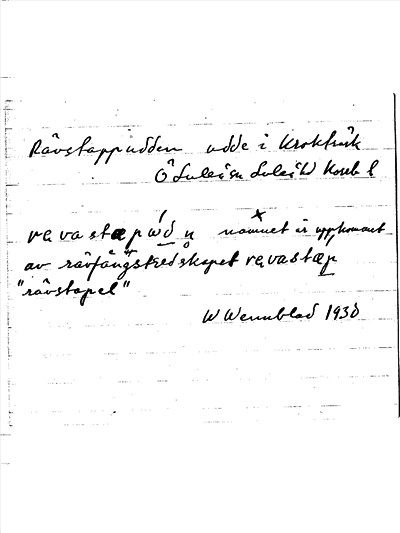 Rävstappudden udde i Krokträsk
Ö Luleå sn Luleå hd Norrb l
rävastapóddn namnet är uppkommet
av rävfångstredskapet rävastap
"rävstapel"
W Wennblad 1930